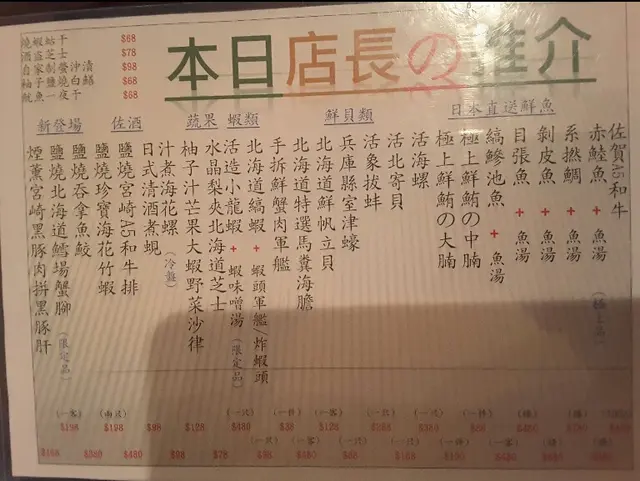 燒蝦姑干 $68
酒盜芝士 $78
自家制螢沖漬 $98
柚子鹽燒白鱔 $68
魷魚一夜干 $68
本日店長の推介
新登場
佐酒
蔬果 蝦類
鮮貝類
日本直送鮮魚
佐賀A5和牛
赤鯥魚 + 魚湯 (極上品)
系撚鯛 + 魚湯
剝皮魚 + 魚湯
目張魚 + 魚湯
縞鰺池魚 + 魚湯
極上鮮鮪の中腩
極上鮮鮪の大腩
活海螺
活北寄貝
活象拔蚌
兵庫縣室津蠔
北海道鮮帆立貝
北海道特選馬糞海膽
手拆鮮蟹肉軍艦
北海道縞蝦 + 蝦頭軍艦/炸蝦頭
活造小龍蝦 + 蝦味噌湯 (限定品)
水晶梨夾北海道芝士
柚子汁芒果大蝦野菜沙律
汁煮海花螺 (冷盤)
日式清酒煮蜆
鹽燒宮崎A5和牛排
鹽燒珍寶海花竹蝦
鹽燒吞拿魚鮫
鹽燒北海道鱈場蟹腳 (限定品)
煙薰宮崎黑豚肉拼黑豚肝
(一客) (兩隻) (一只) (一件) (一客)
$198 $198 $98 $128 $480 $38 $128 $380 $88
$380 $480 $98 $78 $98